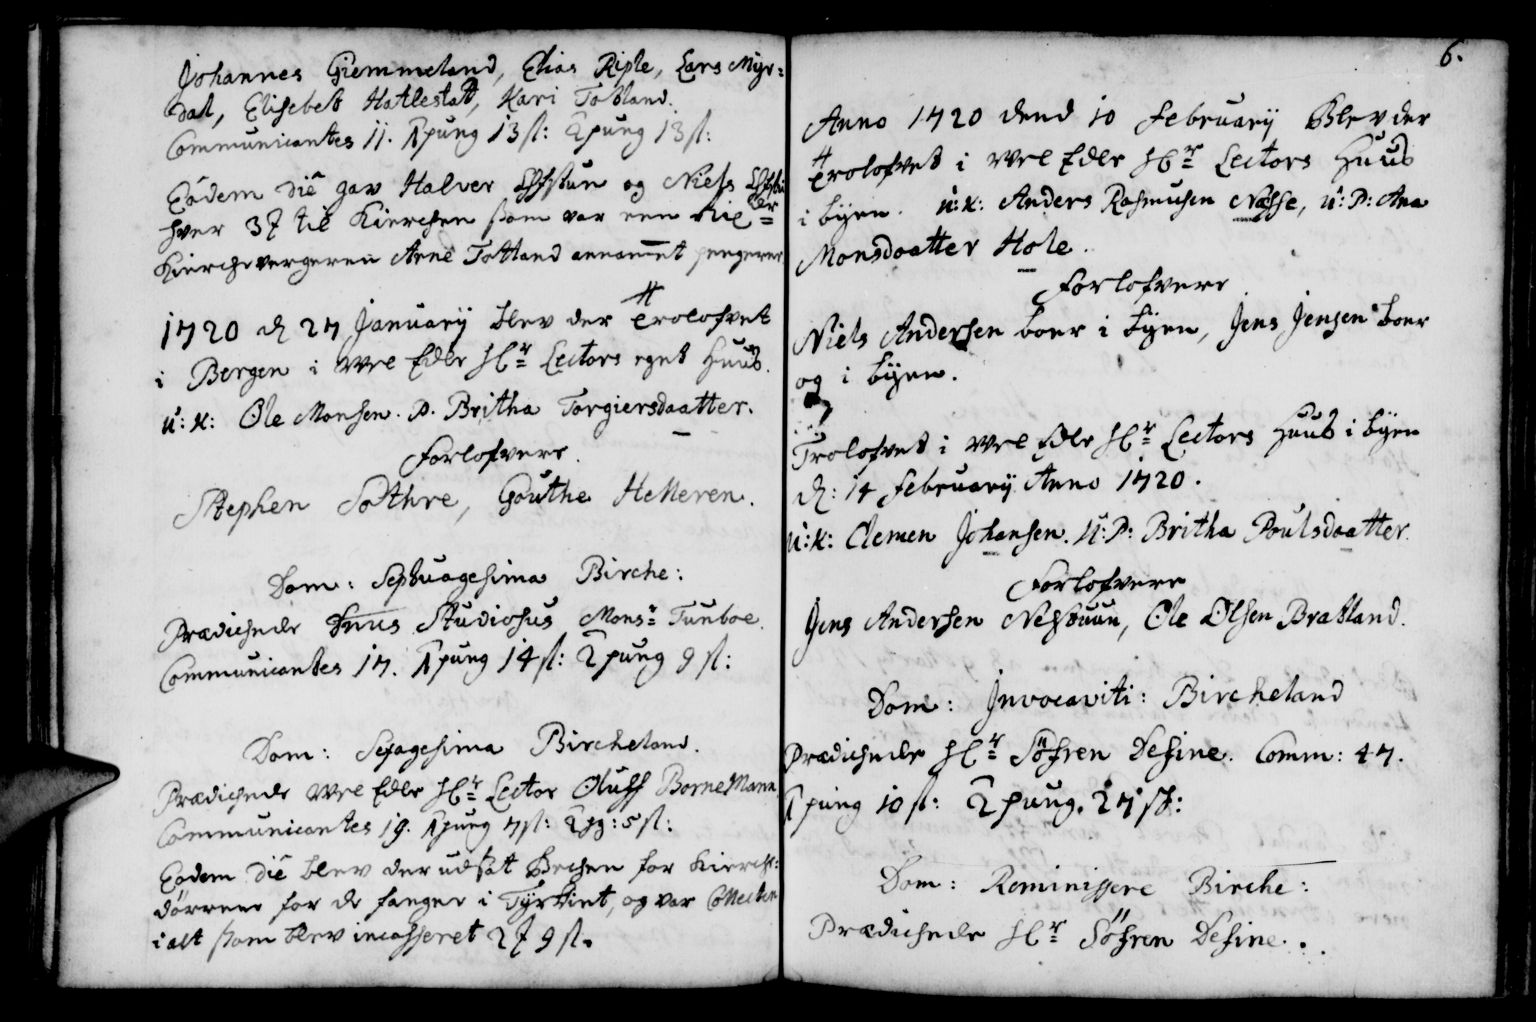 Johannes Giemmeland, Elias Riple, Lars Myr=
dal, Elisebet Hatlestatt, Kari Totland.
Communicantes 11. pung 13 sl: 2 pung 13 sl:
Eodem die gav Halver og Niels
hver 3 til Kierchen som var een
Kirchevergeren Arne Tottland annammet pengerne
1720 d 27 January blev der Trolofvet
i Bergen i Wel Edle Hr Lectors eget Huus.
u: K: Ole Monsen. P. Britha Torgiersdaatter.
Forlofvere.
Stephen Sotthre, Gouthe Helleren.
Dom: Septuagesima Birche:
Prædichede Dnus Studiosus Monsr Tunboe.
Communicantes 17. pung 14 sl: 2 pung 9 sl:
Dom: Sexagesima Bircheland.
Prædichede Wel Edle Hr Lector Oluff BorneMann
Communicantes 19. pung 7 sl: 2 pg: 5 sl:
Eodem die blev der udsatt Bechen for Kierche=
dörrene for de fanger i Tyrkiet, og var Collecten
i alt som blev incasseret 2 9 sl.
6.
Anno 1720 dend 10 February Blev der
Trolofvet i Wel Edle Hr Lectors Huus
i byen. u: K: Anders Rasmusen Næsse, u: P: Ana
Monsdaatter Hole.
Forlofvere
Niels Andersen boer i byen, Jens Jensen boer
og i byen.
Trolofvet i Wel Edle Hr Lectors Huus i byen
d: 14 February Anno 1720.
u: K: Clemen Johansen. u: P: Britha Poulsdaatter.
Forlofvere
Jens Andersen Nestuun, Ole Olsen Bratland.
Dom: Invocaviti: Bircheland
Prædichede Hr Söfren Desine. Comm: 47.
pung 10 sl: 2 pung. 27 sk:
Dom: Reminissere Birche:
Prædichede Hr Söfren Desine.